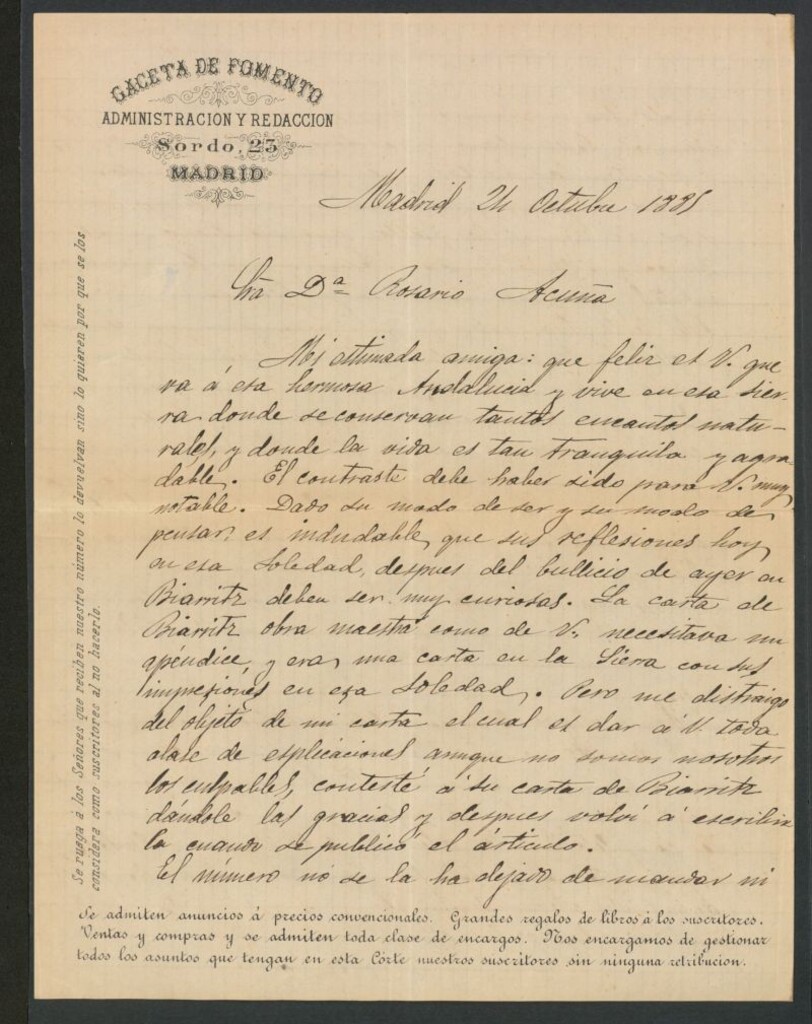 GACETA DE FOMENTO
ADMINISTRACION Y REDACCION
Sordo, 23
MADRID
Madrid 24 Octubre 1885
Sra Dª Rosario Acuña
Mi estimada amiga: que feliz es V. que
va á esa hermosa Andalucia y vive en esa sier-
ra donde se conservan tantos encantos natu-
rales, y donde la vida es tan tranquila y agra-
dable. El contraste debe haber sido para V. muy
notable. Dado su modo de ser y su modo de
pensar, es indudable, que sus reflesiones hoy
en esa Soledad, despues del bullicio de ayer en
Biarritz deben ser muy curiosas. La carta de
Biarritz obra maestra como de V., necesitava un
apéndice, y era, una carta en la Sierra con sus
impresiones en esa Soledad. Pero me distraigo
del objeto de mi carta el cual es dar á V. toda
clase de esplicaciones aunque no somos nosotros
los culpables, contesté á su carta de Biarritz
dándole las gracias y despues volví á escribir
la cuando se publicó el artículo.
El número no se la ha dejado de mandar ni
Se ruega á los Señores que reciben nuestro número lo devuelvan sino lo quieren por que se los
considera como suscritores al no hacerlo.
Se admiten anuncios á precios convencionales. Grandes regalos de libros á los suscritores.
Ventas y compras y se admiten toda clase de encargos. Nos encargamos de gestionar
todos los asuntos que tengan en esta Córte nuestros suscritores sin ninguna retribucion.